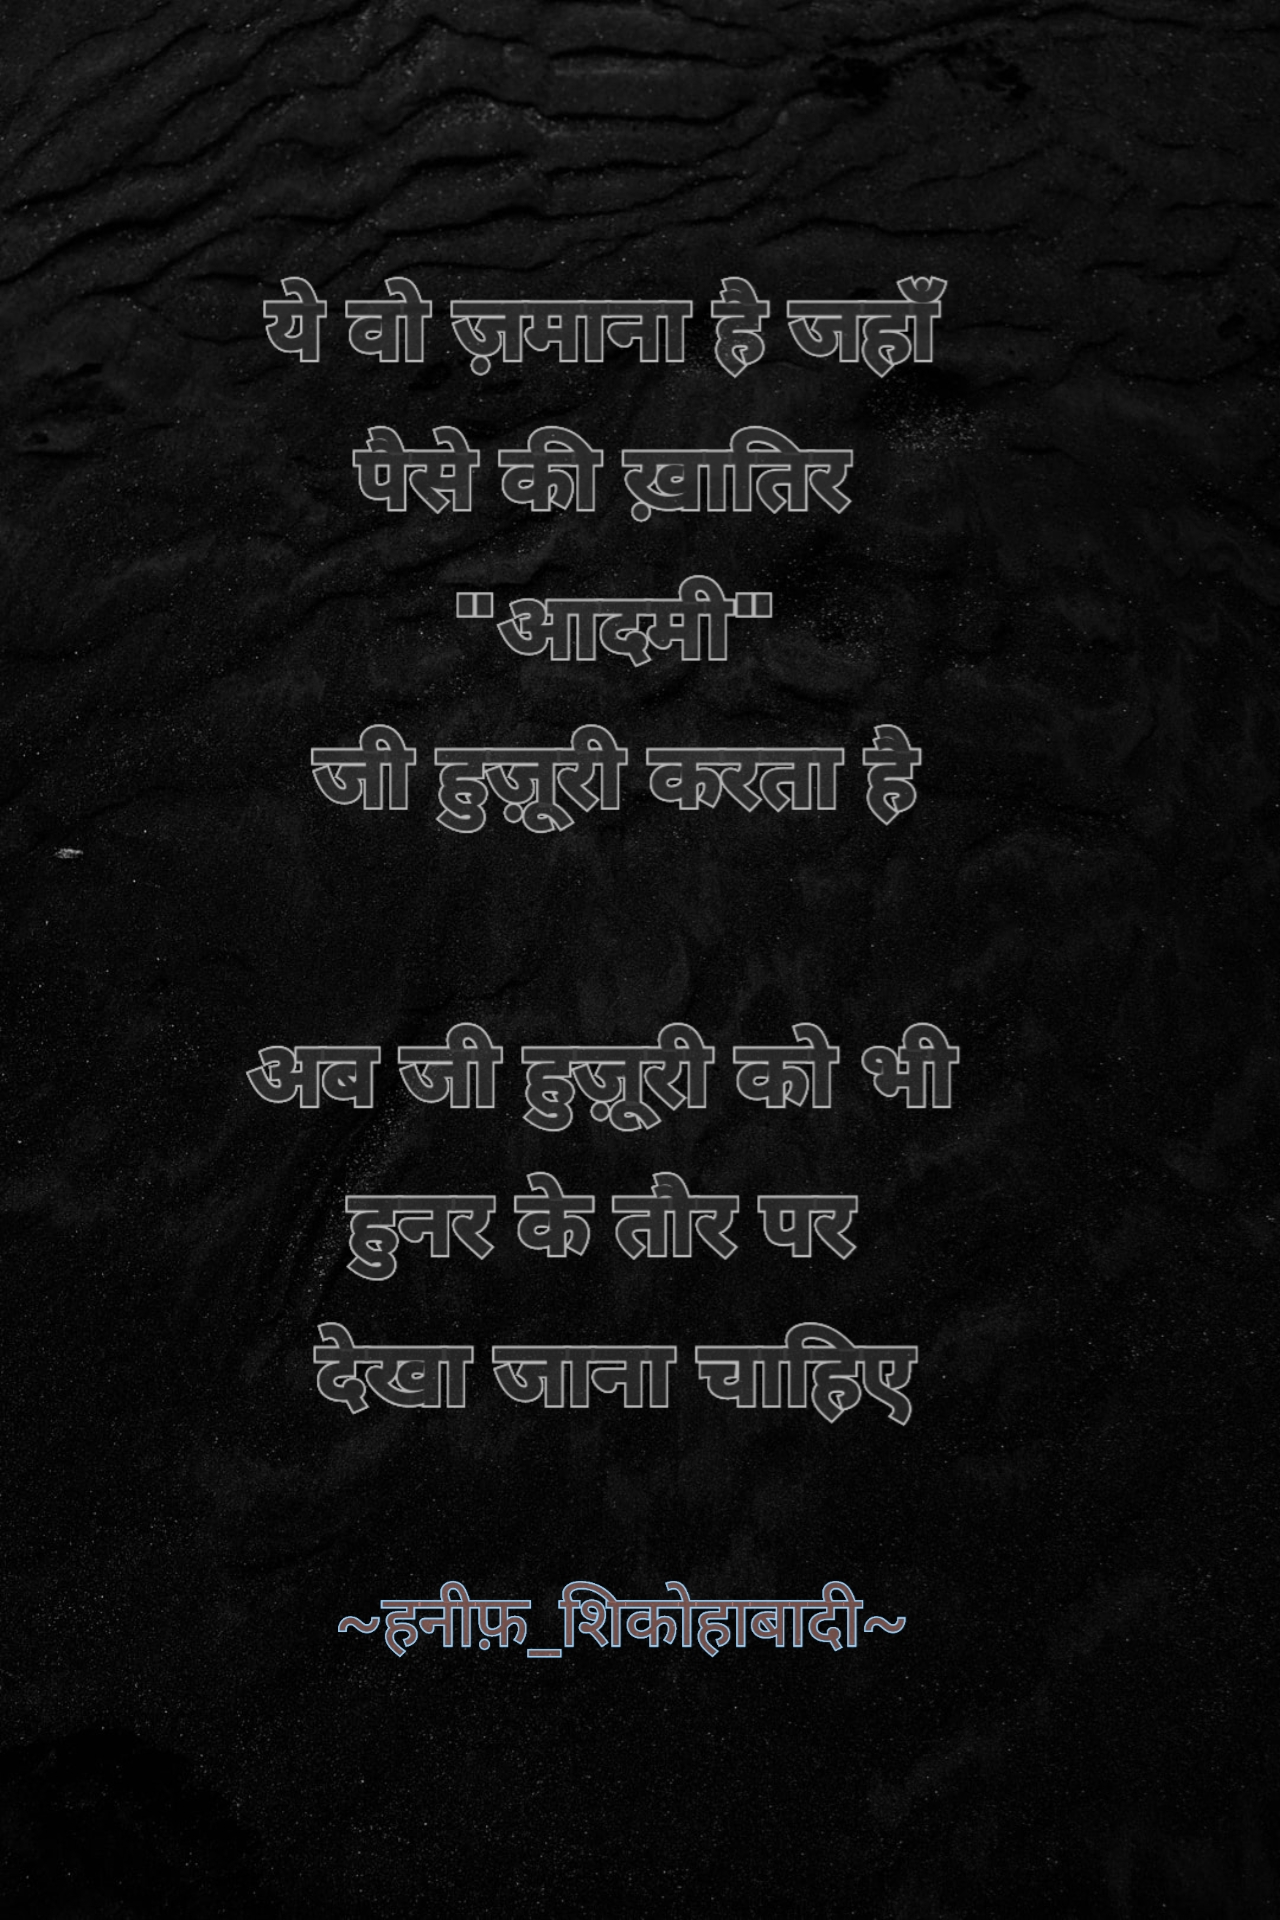 ये वो ज़माना है जहाँ
पैसे की ख़ातिर
"आदमी"
जी हुज़ूरी करता है
अब जी हुज़ूरी को भी
हुनर के तौर पर
देखा जाना चाहिए
~हनीफ़_शिकोहाबादी~